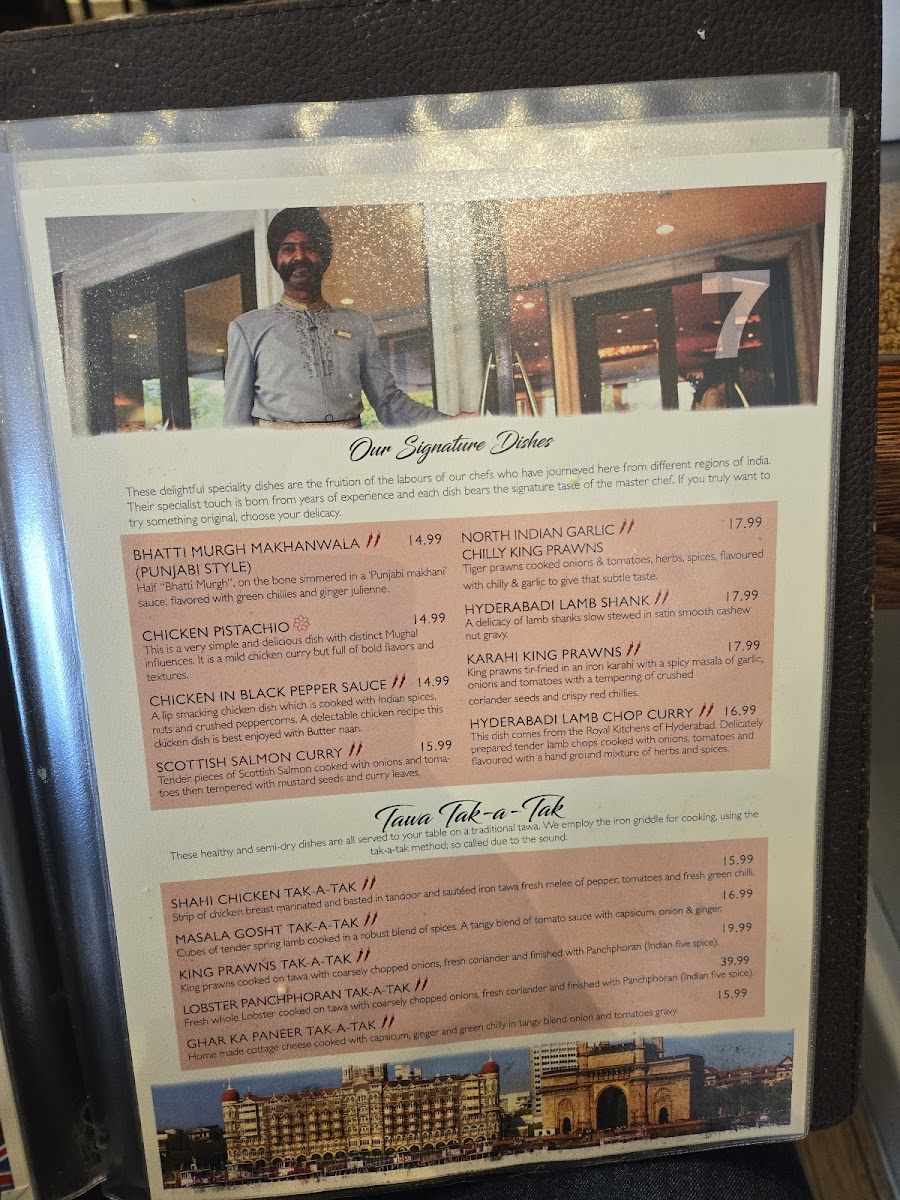 7
Our Signature Dishes
These delightful speciality dishes are the fruition of the labours of our chefs who have journeyed here from different regions of India.
Their specialist touch is born from years of experience and each dish bears the signature taste of the master chef. If you truly want to
try something original, choose your delicacy.
BHATTI MURGH MAKHANWALA 14.99
(PUNJABI STYLE)
Half "Bhatti Murgh", on the bone simmered in a 'Punjabi makhani'
sauce, flavored with green chillies and ginger julienne.
CHICKEN PISTACHIO 14.99
This is a very simple and delicious dish with distinct Mughal
influences. It is a mild chicken curry but full of bold flavors and
textures.
CHICKEN IN BLACK PEPPER SAUCE 14.99
A lip smacking chicken dish which is cooked with Indian spices,
nuts and crushed peppercorns. A delectable chicken recipe this
ckicken dish is best enjoyed with Butter naan.
SCOTTISH SALMON CURRY 15.99
Tender pieces of Scottish Salmon cooked with onions and toma-
toes then tempered with mustard seeds and curry leaves.
NORTH INDIAN GARLIC 17.99
CHILLY KING PRAWNS
Tiger prawns cooked onions & tomatoes, herbs, spices, flavoured
with chilly & garlic to give that subtle taste.
HYDERABADI LAMB SHANK 17.99
A delicacy of lamb shanks slow stewed in satin smooth cashew
nut gravy.
KARAHI KING PRAWNS 17.99
King prawns tir-fried in an iron karahi with a spicy masala of garlic,
onions and tomatoes with a tempering of crushed
coriander seeds and crispy red chillies.
HYDERABADI LAMB CHOP CURRY 16.99
This dish comes from the Royal Kitchens of Hyderabad. Delicately
prepared tender lamb chops cooked with onions, tomatoes and
flavoured with a hand ground mixture of herbs and spices.
Tawa Tak-a-Tak
These healthy and semi-dry dishes are all served to your table on a traditional tawa. We employ the iron griddle for cooking, using the
tak-a-tak method; so called due to the sound.
SHAHI CHICKEN TAK-A-TAK 15.99
Strip of chicken breast marinated and basted in tandoor and sautéed iron tawa fresh melee of pepper, tomatoes and fresh green chilli.
MASALA GOSHT TAK-A-TAK 16.99
Cubes of tender spring lamb cooked in a robust blend of spices. A tangy blend of tomato sauce with capsicum, onion & ginger.
KING PRAWNS TAK-A-TAK 19.99
King prawns cooked on tawa with coarsely chopped onions, fresh coriander and finished with Panchphoran (Indian five spice).
LOBSTER PANCHPHORAN TAK-A-TAK 39.99
Fresh whole Lobster cooked on tawa with coarsely chopped onions, fresh coriander and finished with Panchphoran (Indian five spice).
GHAR KA PANEER TAK-A-TAK 15.99
Home made cottage cheese cooked with capsicum, ginger and green chilly in tangy blend onion and tomatoes gravy.